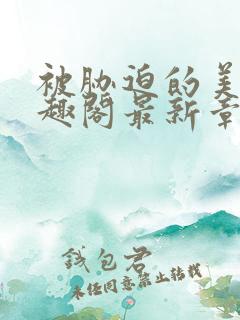 被胁迫的美
趣阁最新章
钱包君
未经同意禁止转载